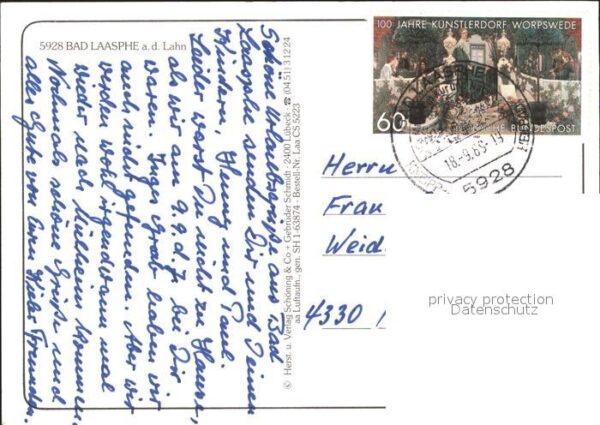 5928 BAD LAASPHE a. d. Lahn
Schöne Urlaubsgrüße aus Bad
Laasphe senden Dir und Deinen
Kindern, Henny und Paul.
Leider warst Du nicht zu Hause,
als wir am 9.9.d.J. bei Dir
waren. Inges Grab haben wir
auch nicht gefunden. Aber wir
werden wohl irgendwann mal
wieder nach Mülheim kommen.
Nochmals schöne Grüße und
alles Gute von Euren Freunden.
© Herst. u. Verlag Schöning & Co + Gebrüder Schmidt · 2400 Lübeck · ☎ (04 51) 3 12 24
aa Luftaufn., gen. SH 1-63874 · Bestell-Nr. Laa CS 5223
100 JAHRE KÜNSTLERDORF WORPSWEDE
60
DEUTSCHE BUNDESPOST
BAD LAASPHE
18.-9.89-15
5928
Herrn
Frau
Weid
4330
privacy protection
Datenschutz